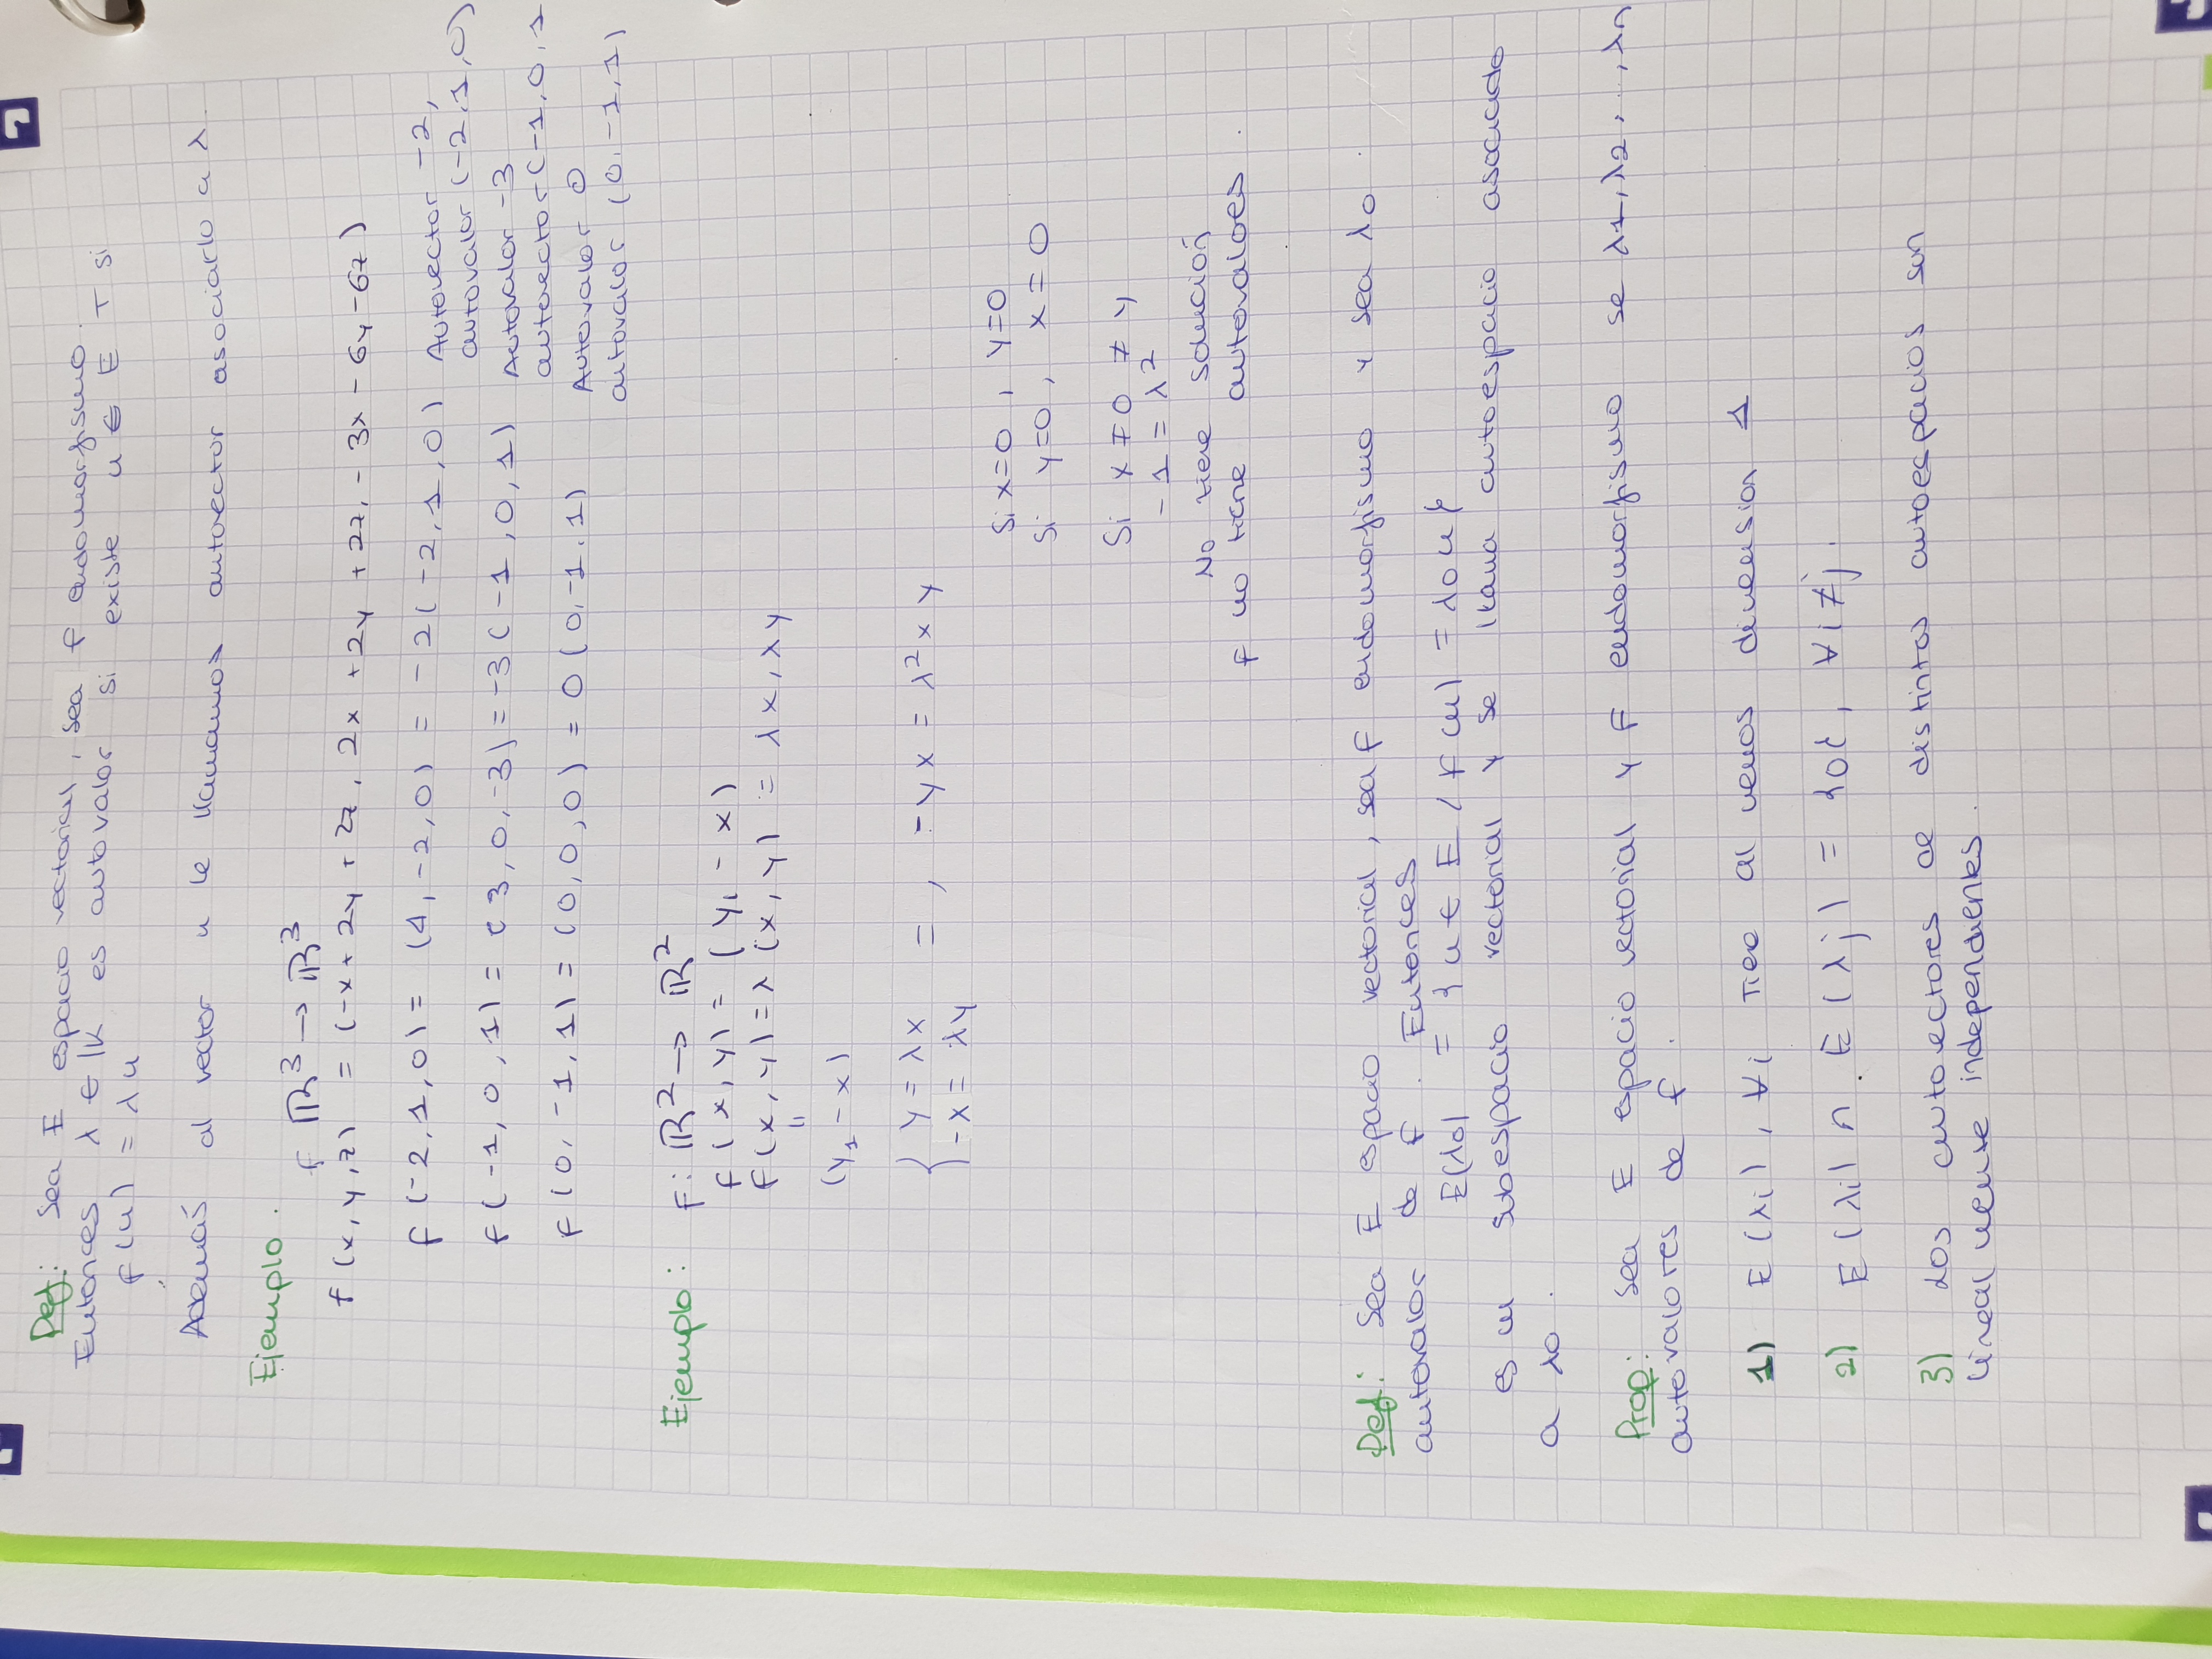 Def: Sea E espacio vectorial, sea f endomorfismo.
Entonces λ ∈ lK es autovalor si existe u ∈ E T si
f(u) = λu
Además al vector u le llamamos autovector asociarlo a λ.
Ejemplo.
f ℝ³ → ℝ³
f(x,y,z) = (-x+2y+2z, 2x+2y+2z, -3x-6y-6z)
f(-2,1,0) = (4,-2,0) = -2(-2,1,0) Autovector -2,
autovalor (-2,1,0)
f(-1,0,1) = (3,0,-3) = -3(-1,0,1) Autovalor -3
autovector (-1,0,1
f(0,-1,1) = (0,0,0) = 0(0,-1,1) Autovalor 0
autovalor (0,-1,1)
Ejemplo: F: ℝ² → ℝ²
f(x,y) = (y,-x)
f(x,y) = λ(x,y) = λx, λy
=
(y,-x)
{ y = λx
-x = λy =, -yx = λ²xy
Si x=0, y=0
Si y=0, x=0
Si x≠0≠y
-1 = λ²
No tiene solución
F no tiene autovaloes.
Def: Sea E espacio vectorial, sea F endomorfismo y sea λo
autovalor de F. Entonces
E(λo) = {u ∈ E / F(u) = λou}
es un subespacio vectorial y se llama autoespacio asociado
a λo.
Prop: Sea E espacio vectorial y F endomorfismo se λ1,λ2,...,λn
autovalores de f.
1) E(λi), ∀i Tiee al menos dimension 1
2) E(λi) ∩ E(λj) = {0}, ∀i≠j.
3) Los autovectores de distintos autoespacios son
lineal mente independientes.